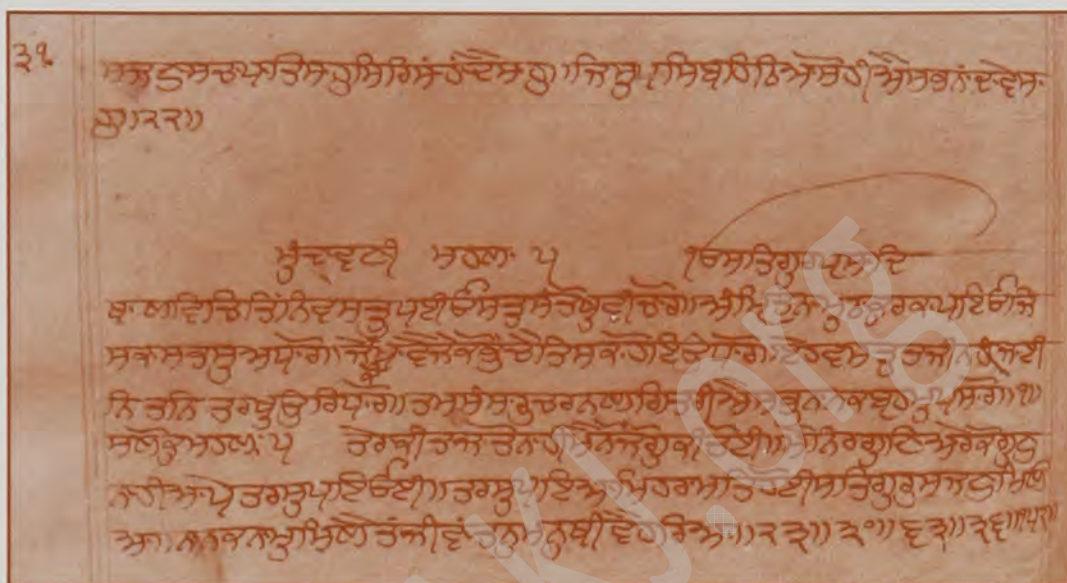 ੩੧
ਸਜਣੁ ਸਚਾ ਪਾਤਿਸਾਹੁ ਸਿਰਿ ਸਾਹਾਂ ਦੈ ਸਾਹੁ॥ ਜਿਸੁ ਪਾਸਿ ਬਹਿਠਿਆ ਸੋਹੀਐ ਸਭਨਾਂ ਦਾ ਵੇਸਾ
ਹੁ॥੨੨॥
ਮੁੰਦਾਵਣੀ ਮਹਲਾ ੫ ੴ ਸਤਿਗੁਰ ਪ੍ਰਸਾਦਿ
ਥਾਲ ਵਿਚਿ ਤਿੰਨਿ ਵਸਤੂ ਪਈਓ ਸਤੁ ਸੰਤੋਖੁ ਵੀਚਾਰੋ॥ ਅੰਮ੍ਰਿਤ ਨਾਮੁ ਠਾਕੁਰ ਕਾ ਪਇਓ ਜਿ
ਸ ਕਾ ਸਭਸੁ ਅਧਾਰੋ॥ ਜੇ ਕੋ ਖਾਵੈ ਜੇ ਕੋ ਭੁੰਚੈ ਤਿਸ ਕਾ ਹੋਇ ਉਧਾਰੋ॥ ਏਹ ਵਸਤੁ ਤਜੀ ਨਹ ਜਾਈ
ਨਿਤ ਨਿਤ ਰਖੁ ਉਰਿ ਧਾਰੋ॥ ਤਮ ਸੰਸਾਰੁ ਚਰਨ ਲਗਿ ਤਰੀਐ ਸਭੁ ਨਾਨਕ ਬ੍ਰਹਮ ਪਸਾਰੋ॥੧॥
ਸਲੋਕੁ ਮਹਲਾ ੫ ਤੇਰਾ ਕੀਤਾ ਜਾਤੋ ਨਾਹੀ ਮੈਨੋ ਜੋਗੁ ਕੀਤੋਈ॥ ਮੈ ਨਿਰਗੁਣਿਆਰੇ ਕੋ ਗੁਣੁ
ਨਾਹੀ ਆਪੇ ਤਰਸੁ ਪਇਓਈ॥ ਤਰਸੁ ਪਇਆ ਮਿਹਰਾਮਤਿ ਹੋਈ ਸਤਿਗੁਰੁ ਸਜਣੁ ਮਿਲਿ
ਆ॥ ਨਾਨਕ ਨਾਮੁ ਮਿਲੈ ਤਾਂ ਜੀਵਾਂ ਤਨੁ ਮਨੁ ਥੀਵੈ ਹਰਿਆ॥੨੩॥੨੧॥੬੨॥੨੬॥੫੨॥